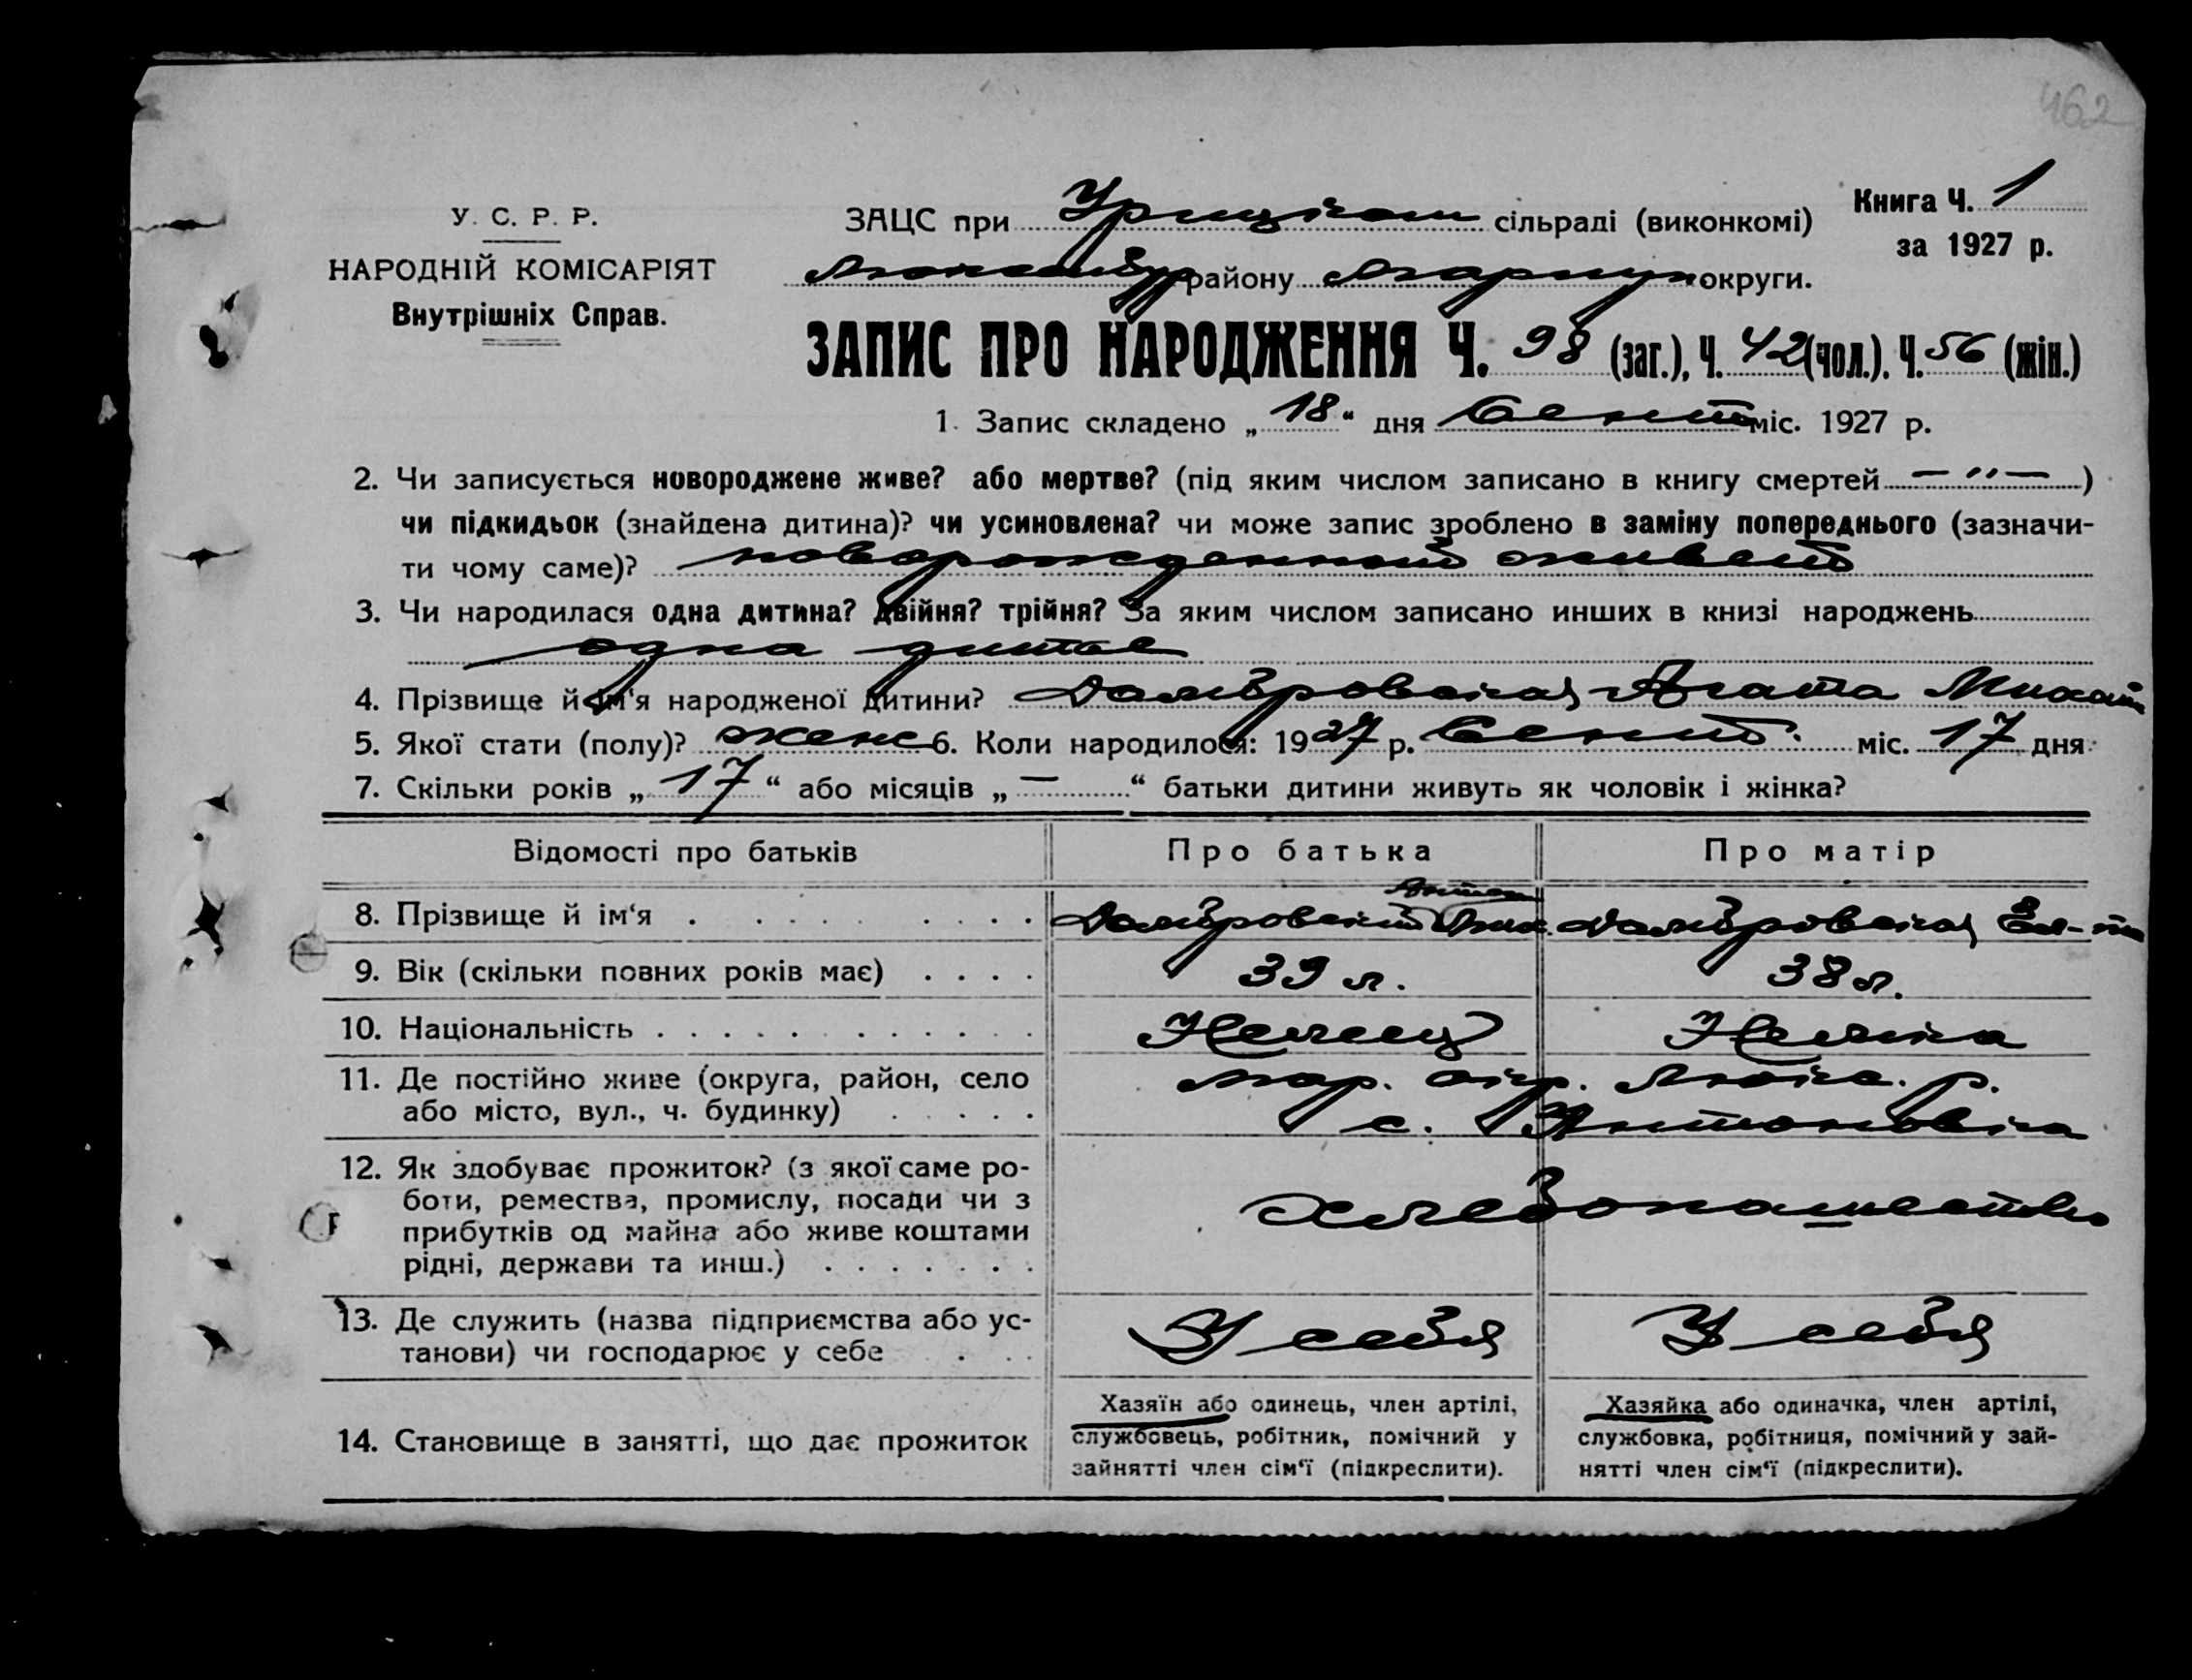 462
У. С. Р. Р.
НАРОДНІЙ КОМІСАРІЯТ
Внутрішніх Справ.
ЗАЦС при Урицьком сільраді (виконкомі)
Люксембур району Мариуп округи.
Книга Ч. 1
за 1927 р.
ЗАПИС ПРО НАРОДЖЕННЯ Ч. 98 (заг.), Ч. 42 (чол.). Ч. 56 (жін.)
1. Запис складено „ 18 “ дня Сент міс. 1927 р.
2. Чи записується новороджене живе? або мертве? (під яким числом записано в книгу смертей — " — )
чи підкидьок (знайдена дитина)? чи усиновлена? чи може запис зроблено в заміну попереднього (зазначи-
ти чому саме)? новорожденный живой
3. Чи народилася одна дитина? двійня? трійня? За яким числом записано инших в книзі народжень
одна
4. Прізвище й ім'я народженої дитини? Домбровская Агата Михайл
5. Якої стати (полу)? женс 6. Коли народилося: 1927 р. Сент. міс. 17 дня
7. Скільки років „ 17 “ або місяців „ — “ батьки дитини живуть як чоловік і жінка?
Відомості про батьків Про батька Про матір
Антон
8. Прізвище й ім‘я Домбровский Мих. Домбровская Ел-та
9. Вік (скільки повних років має) 39 л. 38 л.
10. Національність Немец Немка
11. Де постійно живе (округа, район, село Мар. окр. Люкс. р.
або місто, вул., ч. будинку) с. Антоновка
12. Як здобуває прожиток? (з якої саме ро-
боти, ремества, промислу, посади чи з хлебопашество
прибутків од майна або живе коштами
рідні, держави та инш.)
13. Де служить (назва підприємства або ус- У себя У себя
танови) чи господарює у себе
14. Становище в занятті, що дає прожиток
Хазяїн або одинець, член артілі,
службовець, робітник, помічний у
зайнятті член сім‘ї (підкреслити).
Хазяйка або одиначка, член артілі,
службовка, робітниця, помічний у зай-
нятті член сім‘ї (підкреслити).